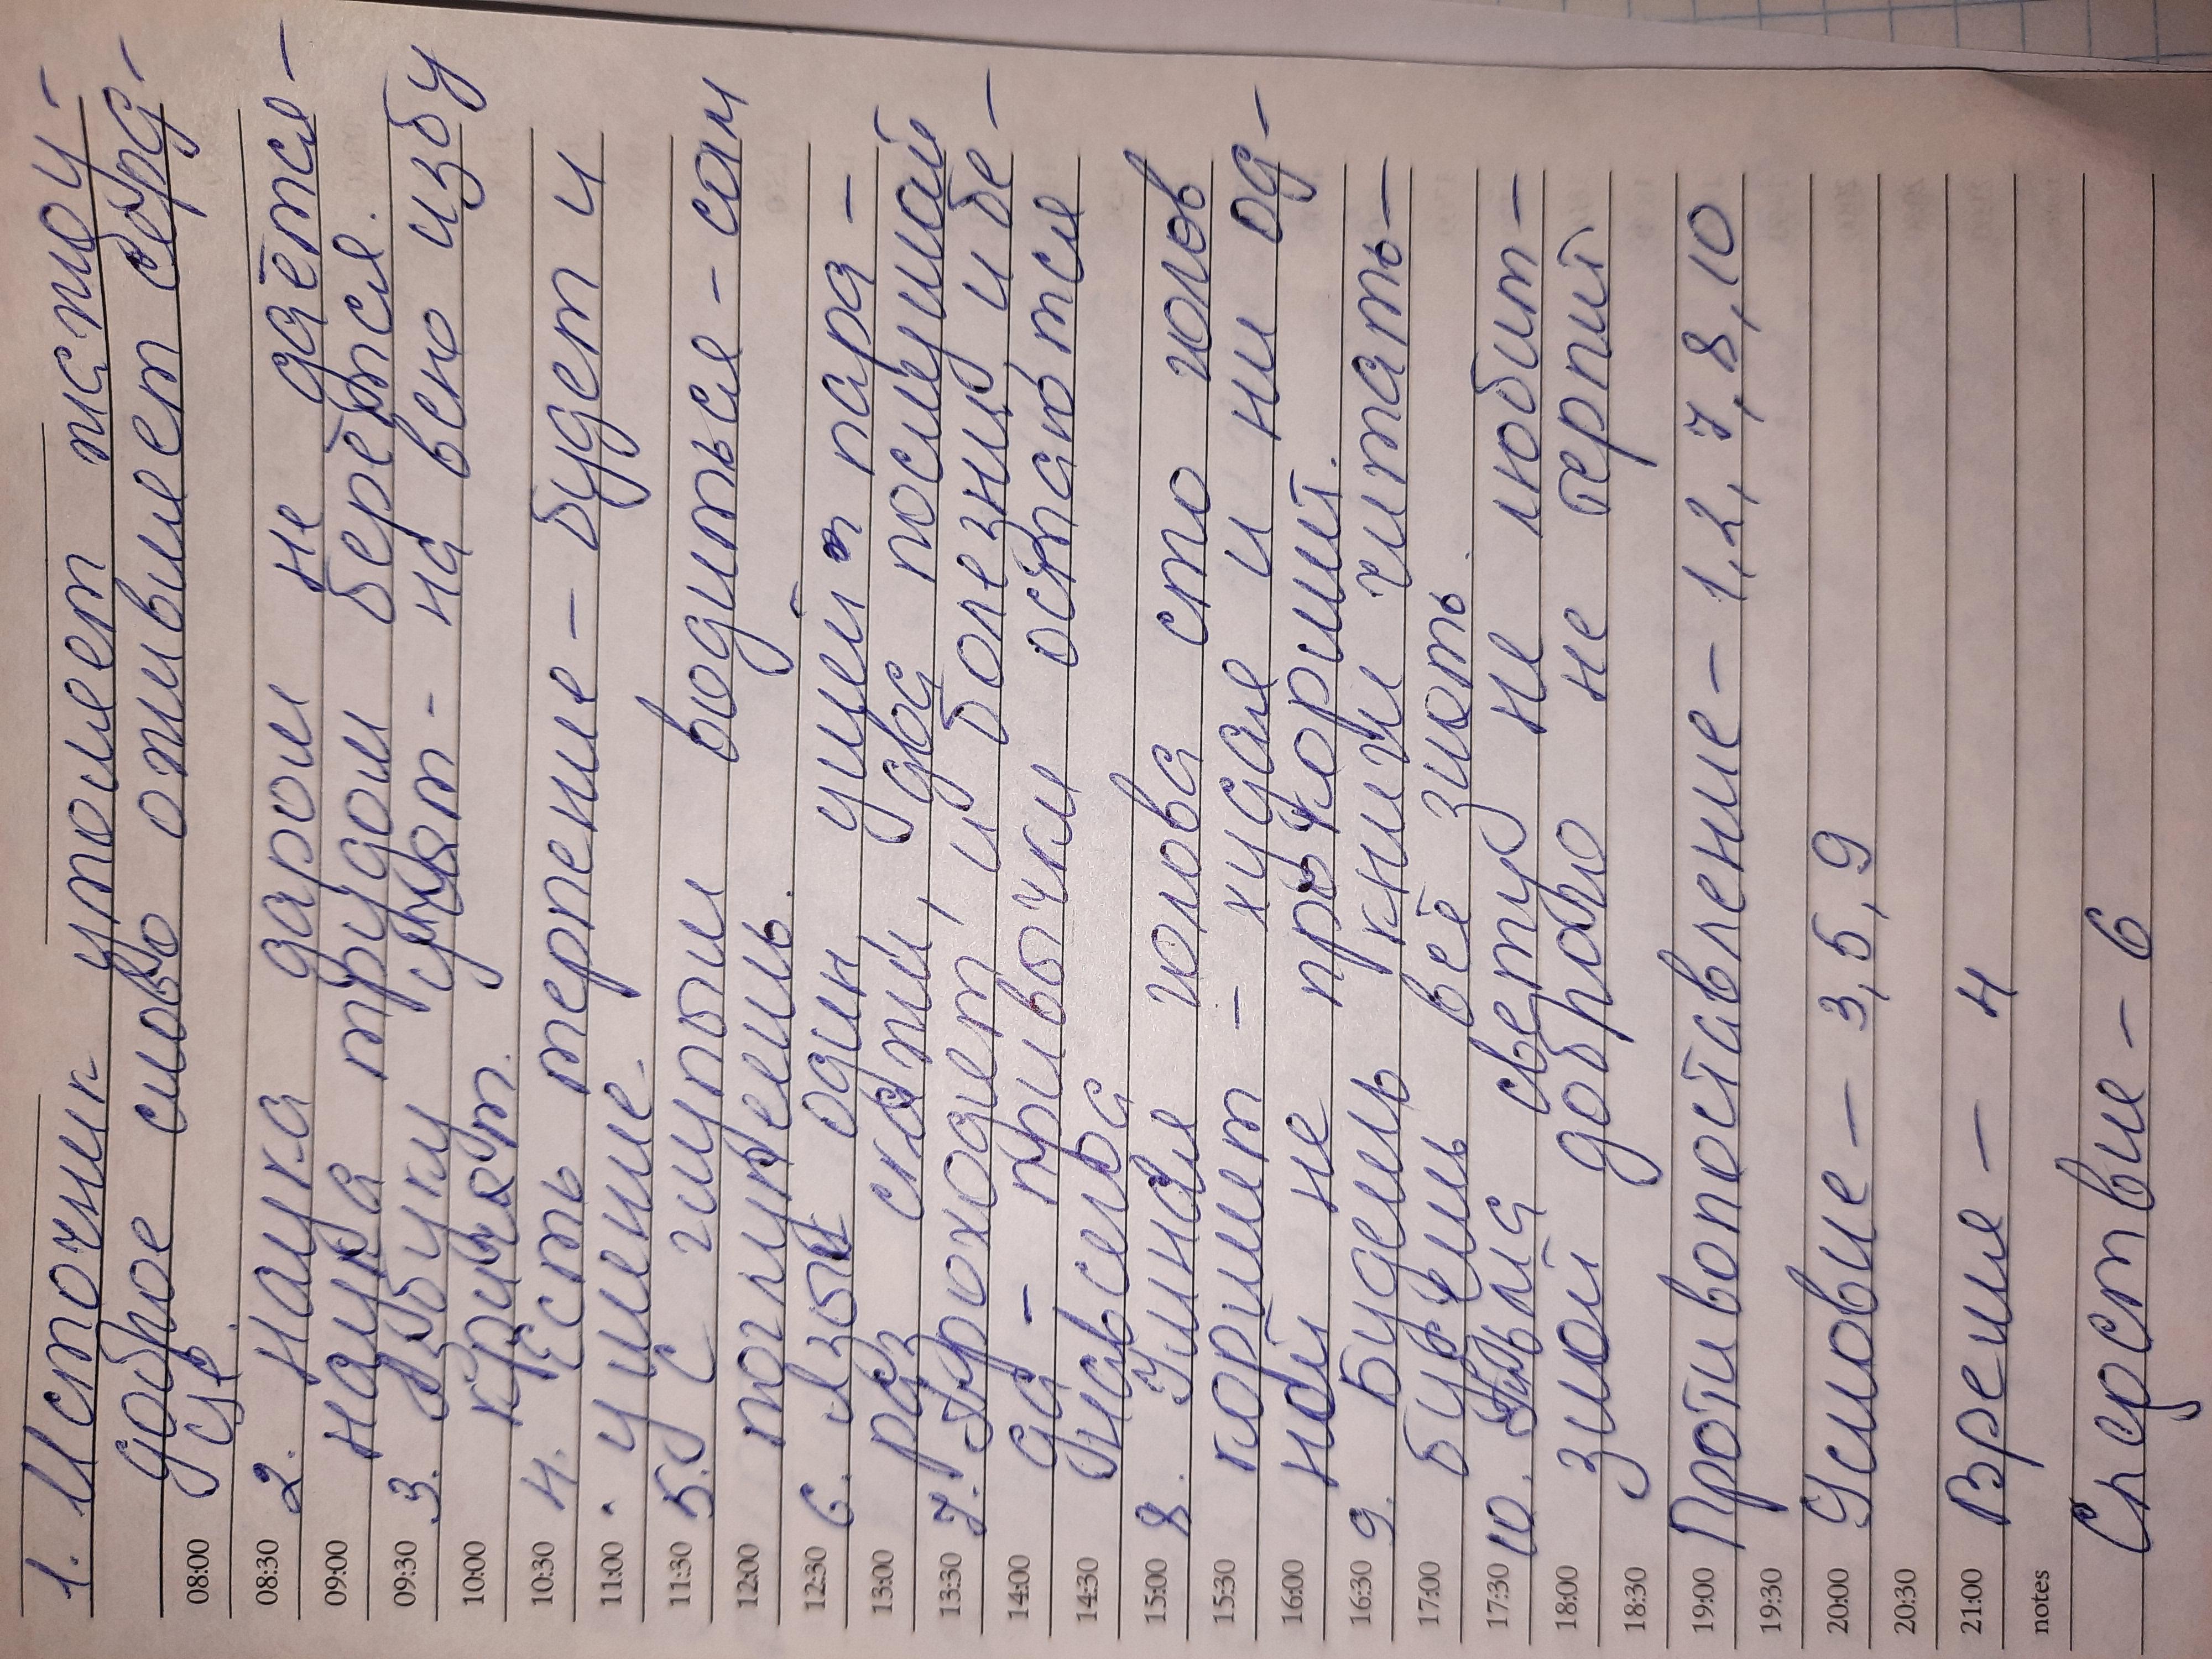 1. Источник утоляет жажду –
доброе слово оживляет серд-
це.
08:00
08:30 2. Наука даром не даётся –
09:00 наука трудом берётся.
09:30 3. Азбуку учат – на всю избу
10:00 кричат.
10:30 4. Есть терпение – будет и
11:00 умение.
11:30 5. С глупым водиться – сам
12:00 поглупеешь.
12:30 6. Язык один, ушей пара –
13:00 раз скажи, два послушай
13:30 7. Проходят и болезни, и бе –
14:00 да – привычки остаются
14:30 навсегда
15:00 8. Умная голова сто голов
15:30 кормит – худая и ни од –
16:00 ной не прокормит.
16:30 9. Будешь книги читать –
17:00 будешь всё знать.
17:30 10. Тьма свету не любит –
18:00 злой доброго не терпит
18:30
19:00 Противопоставление – 1, 2, 7, 8, 10
19:30
20:00 Условие – 3, 5, 9
20:30
21:00 Время – 4
notes
Следствие – 6